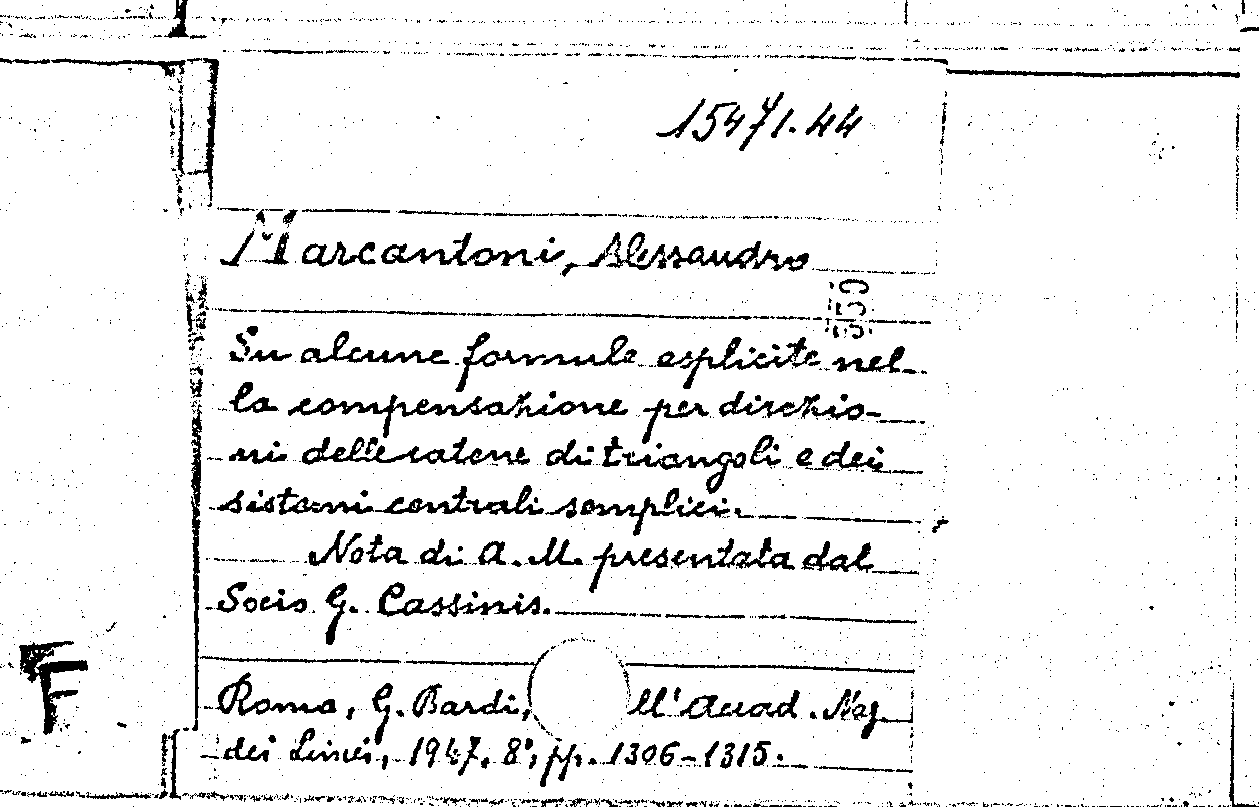 15471.44
Marcantoni, Alessandro
Su alcune formule esplicite nel-
la compensazione per direzio-
ni delle catene di triangoli e dei
sistemi centrali semplici.
Nota di A. M. presentata dal
Socio G. Cassinis.
Roma, G. Bardi, ll'Accad. Naz.
dei Lincei, 1947. 8°, pp. 1306-1315.
F